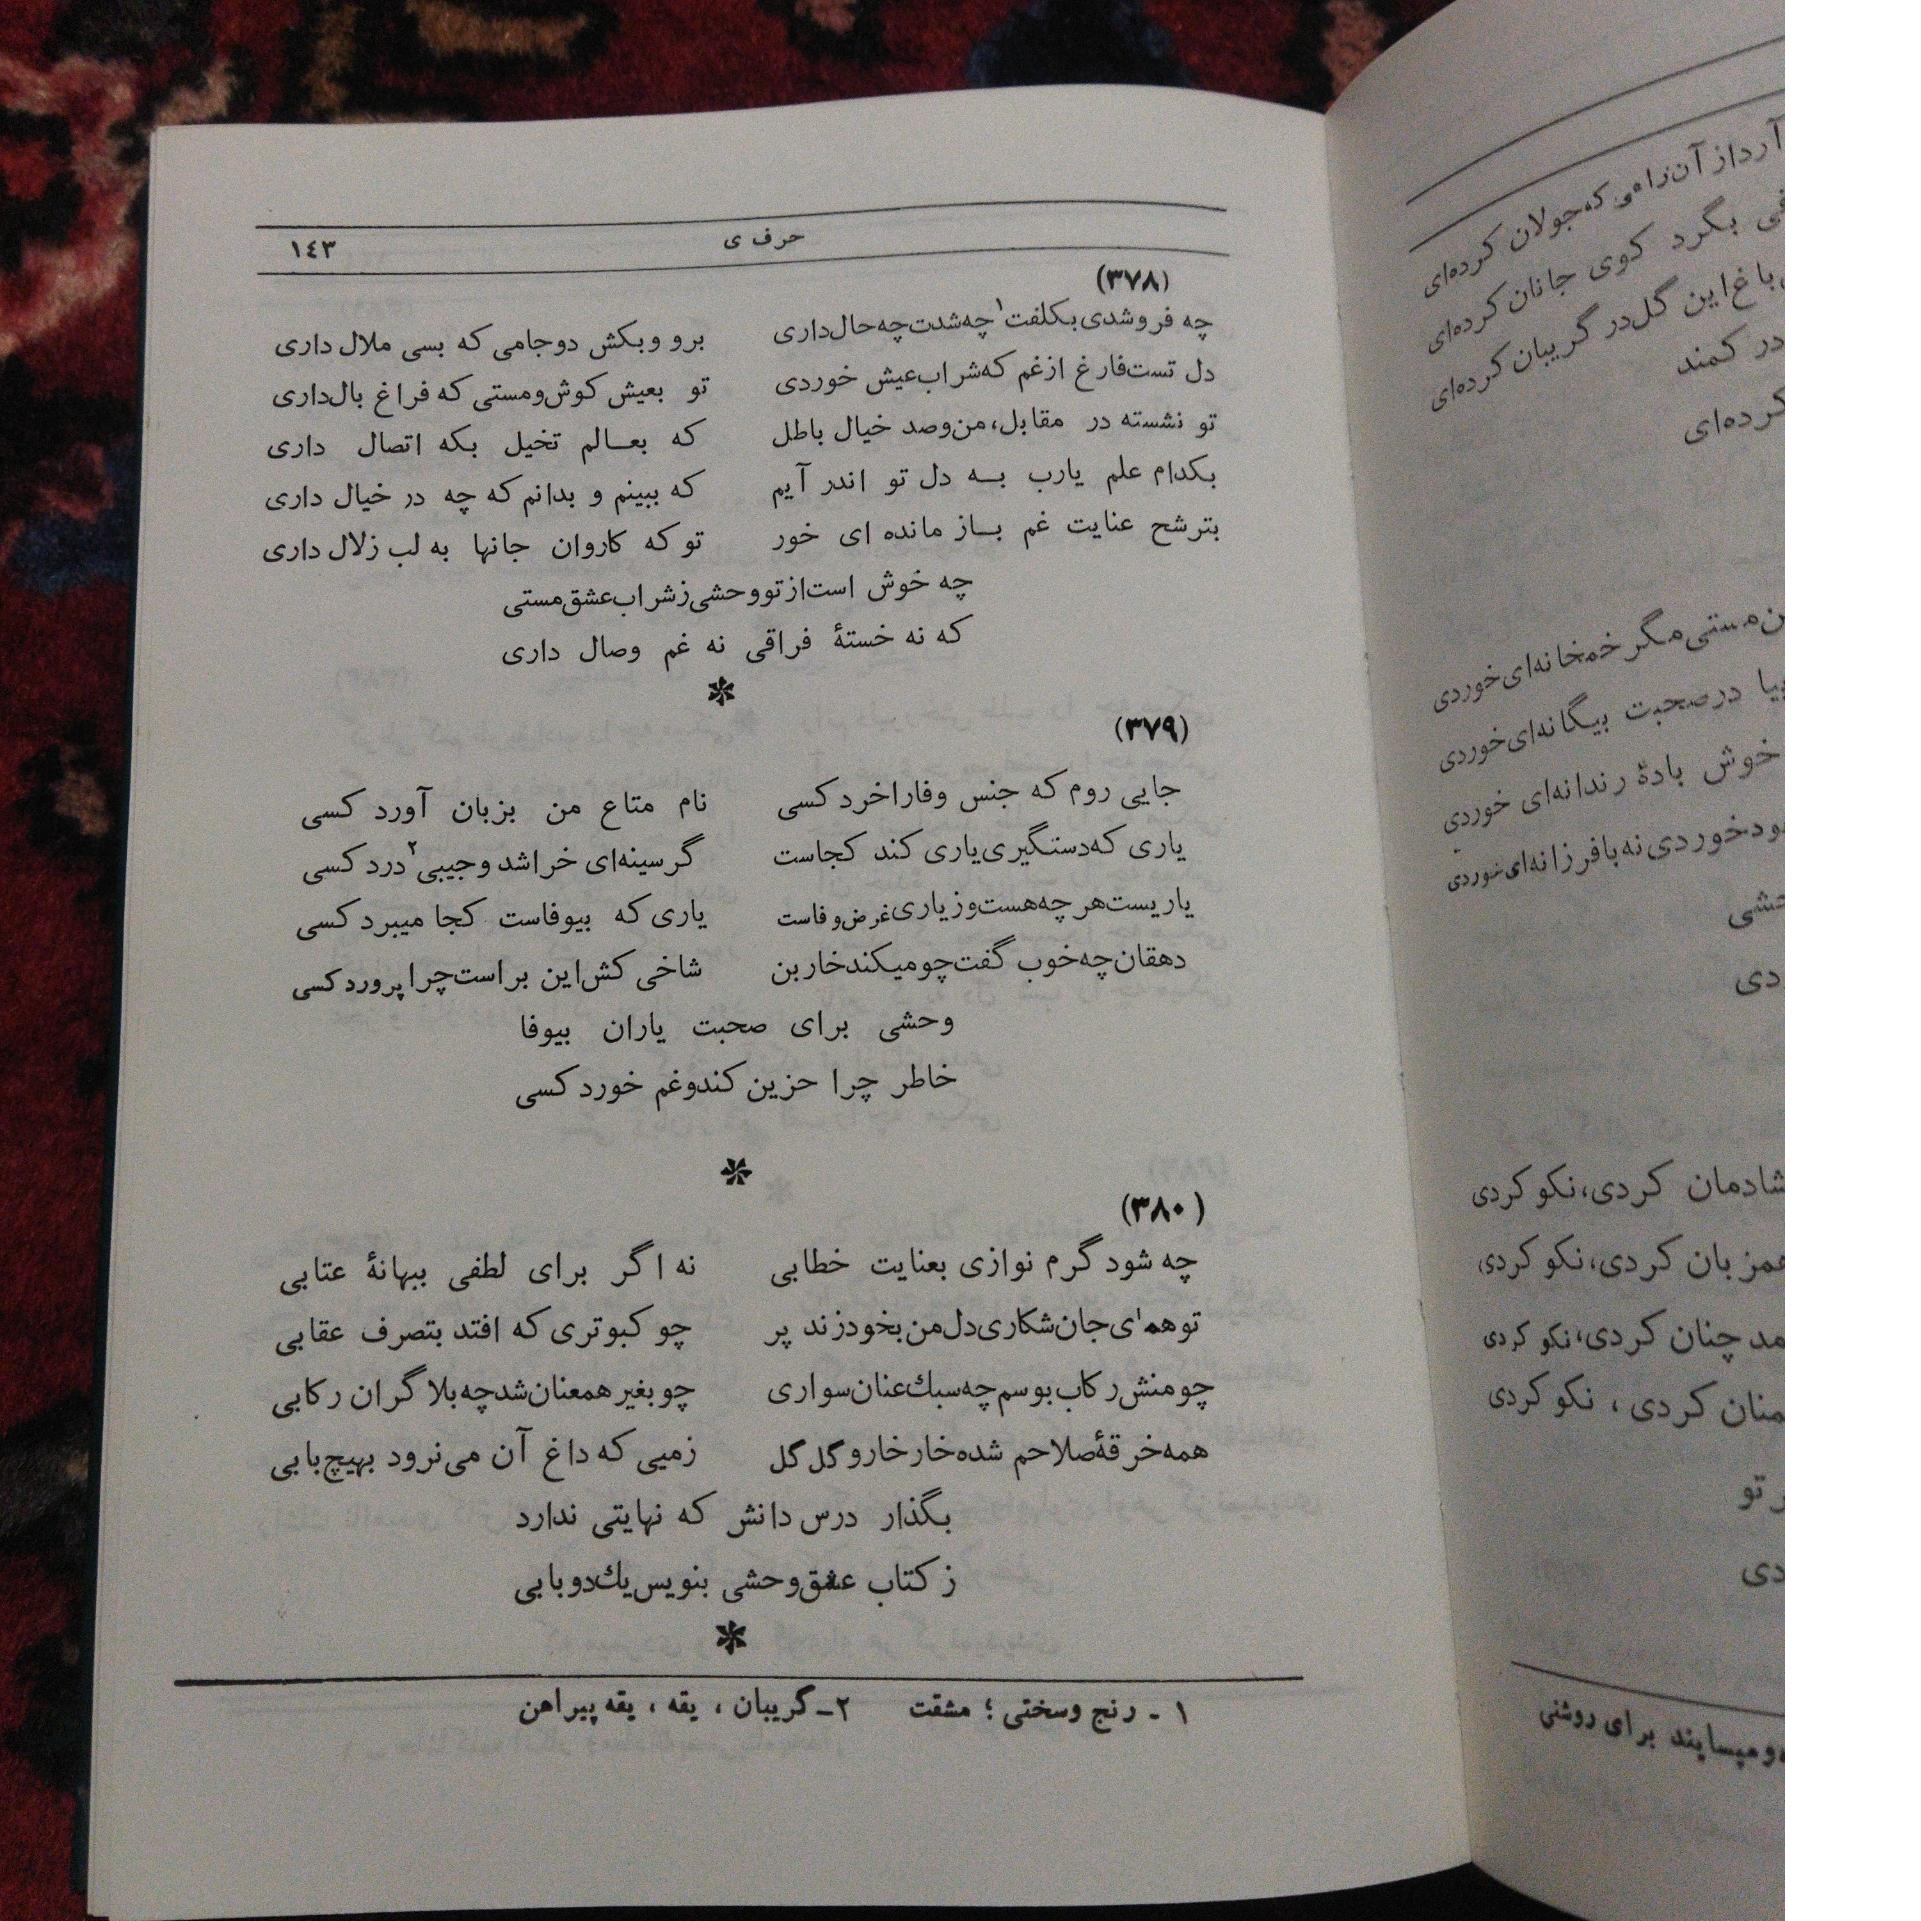 حرف ی
۱۴۳
(۳۷۸)
چه فروشدی بکلفت۱ چه شدت چه حال داری برو و بکش دو جامی که بسی ملال داری
دل تست فارغ از غم که شراب عیش خوردی تو بعیش کوش و مستی که فراغ بال داری
تو نشسته در مقابل، من و صد خیال باطل که بعالم تخیل بکه اتصال داری
بکدام علم یارب به دل تو اندر آیم که ببینم و بدانم که چه در خیال داری
بترشح عنایت غم باز مانده ای خور تو که کاروان جانها به لب زلال داری
چه خوش است از تو وحشی ز شراب عشق مستی
که نه خستهٔ فراقی نه غم وصال داری
(۳۷۹)
جایی روم که جنس وفا را خرد کسی نام متاع من بزبان آورد کسی
یاری که دستگیری یاری کند کجاست گر سینه‌ای خراشد و جیبی۲ درد کسی
یاریست هر چه هست و ز یاری غرض وفاست یاری که بیوفاست کجا میبرد کسی
دهقان چه خوب گفت چو میکند خاربن شاخی کش این بر است چرا پرورد کسی
وحشی برای صحبت یاران بیوفا
خاطر چرا حزین کند و غم خورد کسی
(۳۸۰)
چه شود گرم نوازی بعنایت خطابی نه اگر برای لطفی ببهانهٔ عتابی
تو همای جان شکاری دل من بخود زند پر چو کبوتری که افتد بتصرف عقابی
چو منش رکاب بوسم چه سبك عنان سواری چو بغیر همعنان شد چه بلا گران رکابی
همه خرقهٔ صلاحم شده خار خار و گل گل ز میی که داغ آن می‌نرود بهیچ بابی
بگذار درس دانش که نهایتی ندارد
ز کتاب عشق وحشی بنویس یك دو بابی
۱ - رنج وسختی ؛ مشقت ۲- گریبان ، یقه ، یقه پیراهن
آرد از آن راهی که جولان کرده‌ای
بگرد کوی جانان کرده‌ای
باغ این گل در گریبان کرده‌ای
در کمند
کرده‌ای
مستی مگر خمخانه‌ای خوردی
بیا در صحبت بیگانه‌ای خوردی
خوش بادهٔ رندانه‌ای خوردی
خوردی نه با فرزانه‌ای خوردی
شادمان کردی، نکو کردی
همزبان کردی، نکو کردی
چنان کردی، نکو کردی
کردی ، نکو کردی
تو
میسایند برای روشنی